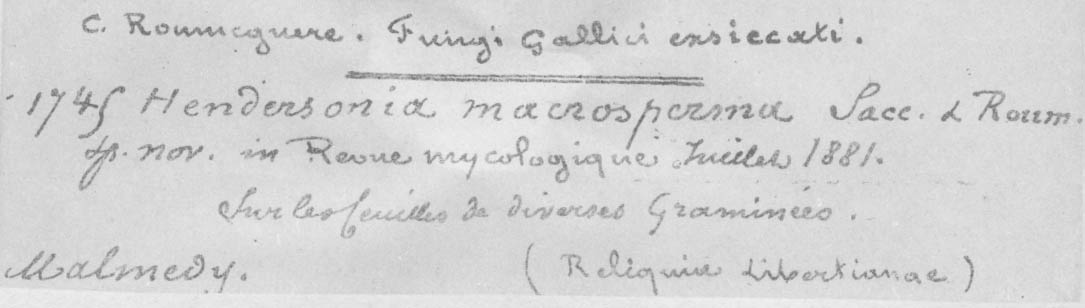 C. Roumeguere. Fungi Gallici exsiccati.
1745 Hendersonia macrosperma Sacc. & Roum.
sp. nov. in Revue mycologique Juillet 1881.
Sur les feuilles de diverses Graminées.
Malmedy. (Reliquiae Libertianae)